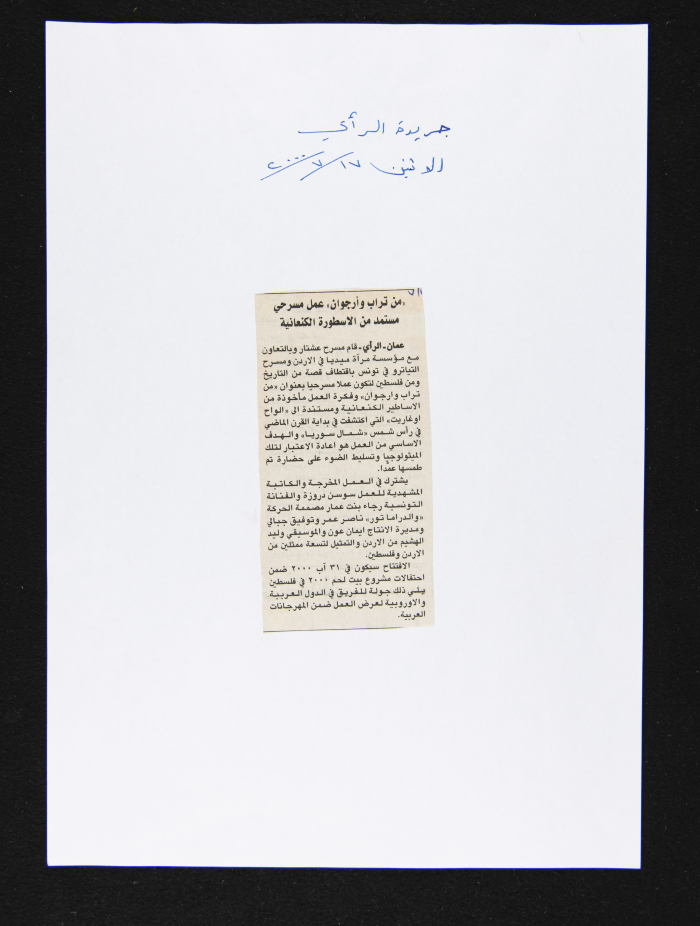 جريدة الرأي
الاثنين ١٧/٧/٢٠٠٠
٧/١
«من تراب وأرجوان» عمل مسرحي
مستمد من الاسطورة الكنعانية
عمان-الرأي- قام مسرح عشتار وبالتعاون
مع مؤسسة مرآة ميديا في الاردن ومسرح
التياترو في تونس باقتطاف قصة من التاريخ
ومن فلسطين لتكون عملا مسرحيا بعنوان «من
تراب وارجوان» وفكرة العمل مأخوذة من
الاساطير الكنعانية ومستندة الى «الواح
اوغاريت» التي اكتشفت في بداية القرن الماضي
في رأس شمس «شمال سوريا» والهدف
الاساسي من العمل هو اعادة الاعتبار لتلك
الميثولوجيا وتسليط الضوء على حضارة تم
طمسها عمداً.
يشترك في العمل المخرجة والكاتبة
المشهدية للعمل سوسن دروزة والفنانة
التونسية رجاء بنت عمار مصممة الحركة
«والدراما تور» ناصر عمر وتوفيق جبالي
ومديرة الانتاج ايمان عون والموسيقي وليد
الهشيم من الاردن والتمثيل لتسعة ممثلين من
الاردن وفلسطين.
الافتتاح سيكون في ٣١ آب ٢٠٠٠ ضمن
احتفالات مشروع بيت لحم ٢٠٠٠ في فلسطين
يلي ذلك جولة للفريق في الدول العربية
والاوروبية لعرض العمل ضمن المهرجانات
العربية.